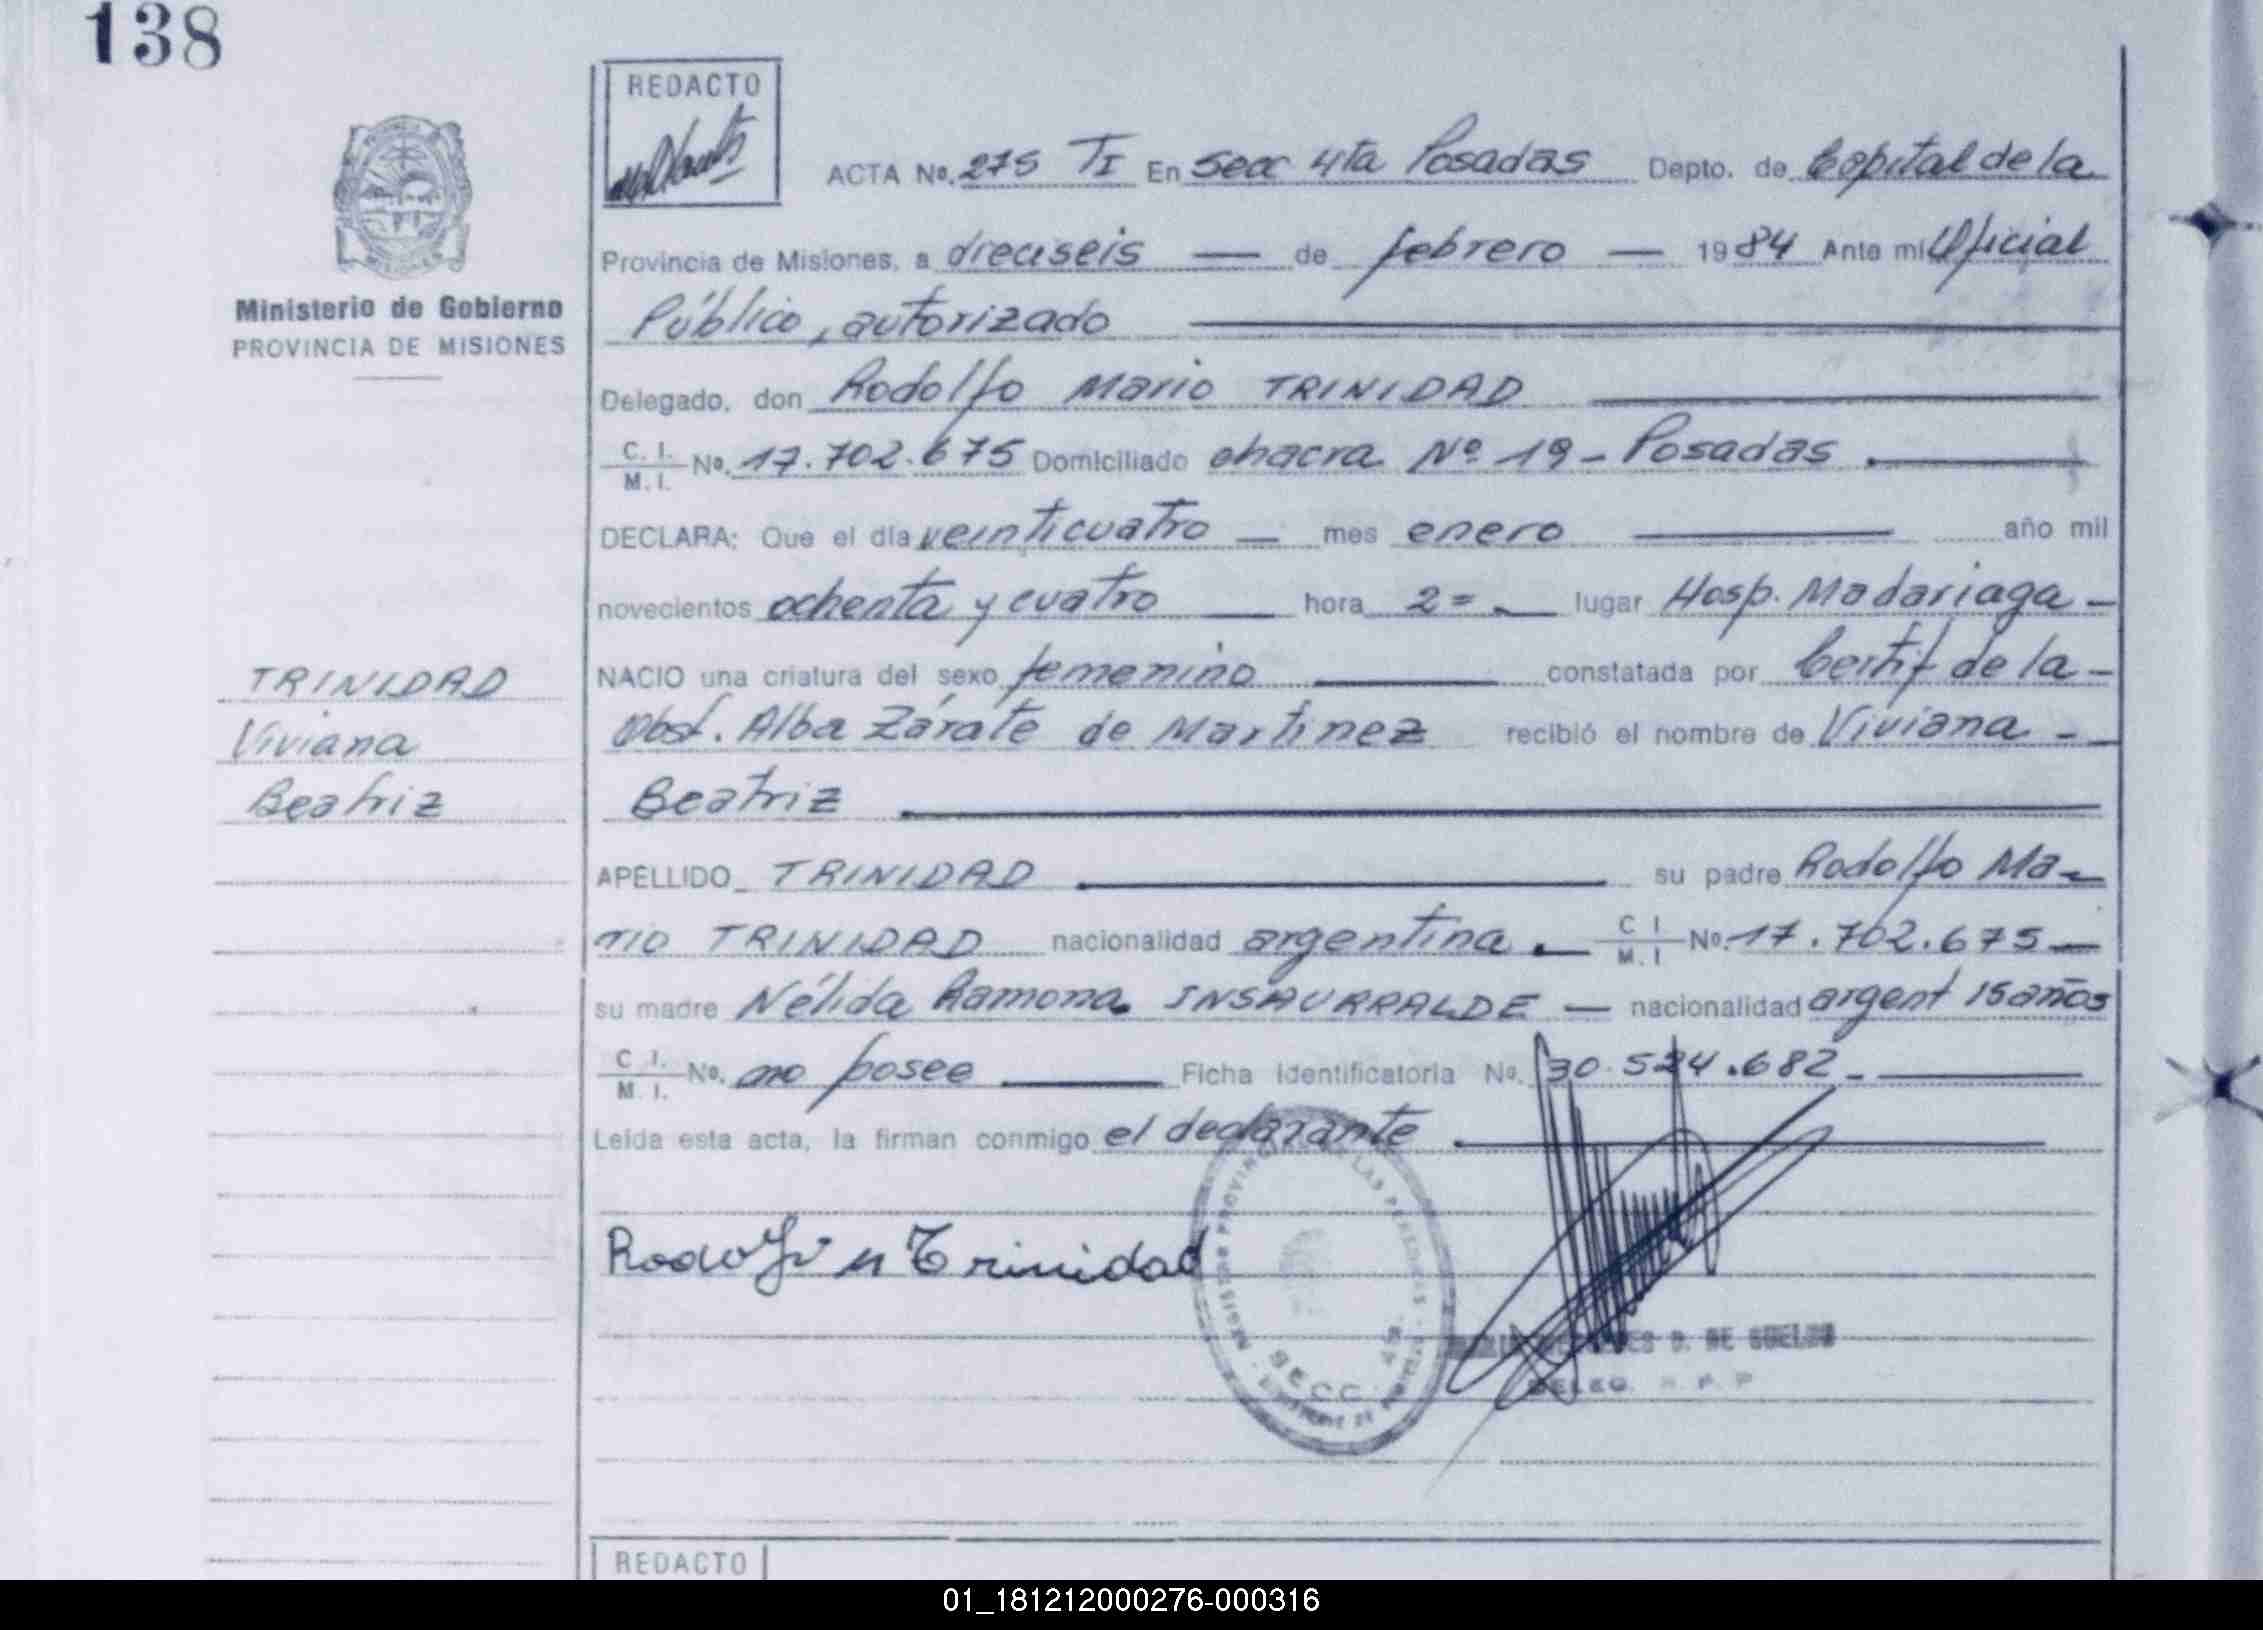 138
REDACTO
ACTA No. 275 TI En Secc 4ta Posadas Depto. de Capital de la
Provincia de Misiones, a dieciseis — de febrero — 1984 Ante mi Oficial
Público, autorizado
Ministerio de Gobierno
PROVINCIA DE MISIONES
Delegado, don Rodolfo Mario TRINIDAD
C. I. / M. I. No. 17.702.675 Domiciliado chacra Nº 19 - Posadas.
DECLARA: Que el día veinticuatro — mes enero — año mil
novecientos ochenta y cuatro — hora 2= — lugar Hosp. Madariaga -
NACIO una criatura del sexo femenino — constatada por Certif de la -
Obst. Alba Zárate de Martinez recibió el nombre de Viviana -
Beatriz
TRINIDAD
Viviana
Beatriz
APELLIDO TRINIDAD — su padre Rodolfo Ma-
rio TRINIDAD nacionalidad argentina. — C I / M. I No. 17.702.675 —
su madre Nélida Ramona INSAURRALDE — nacionalidad argent 15 años
C. I. / M. I. No. no posee — Ficha Identificatoria No. 30.524.682 - —
Leida esta acta, la firman conmigo el declarante
Rodolfo M Trinidad
REGISTRO PROVINCIAL DE LAS PERSONAS
SECC. 4ta.
D. DE
DELEG. R. P. P
REDACTO
01_181212000276-000316